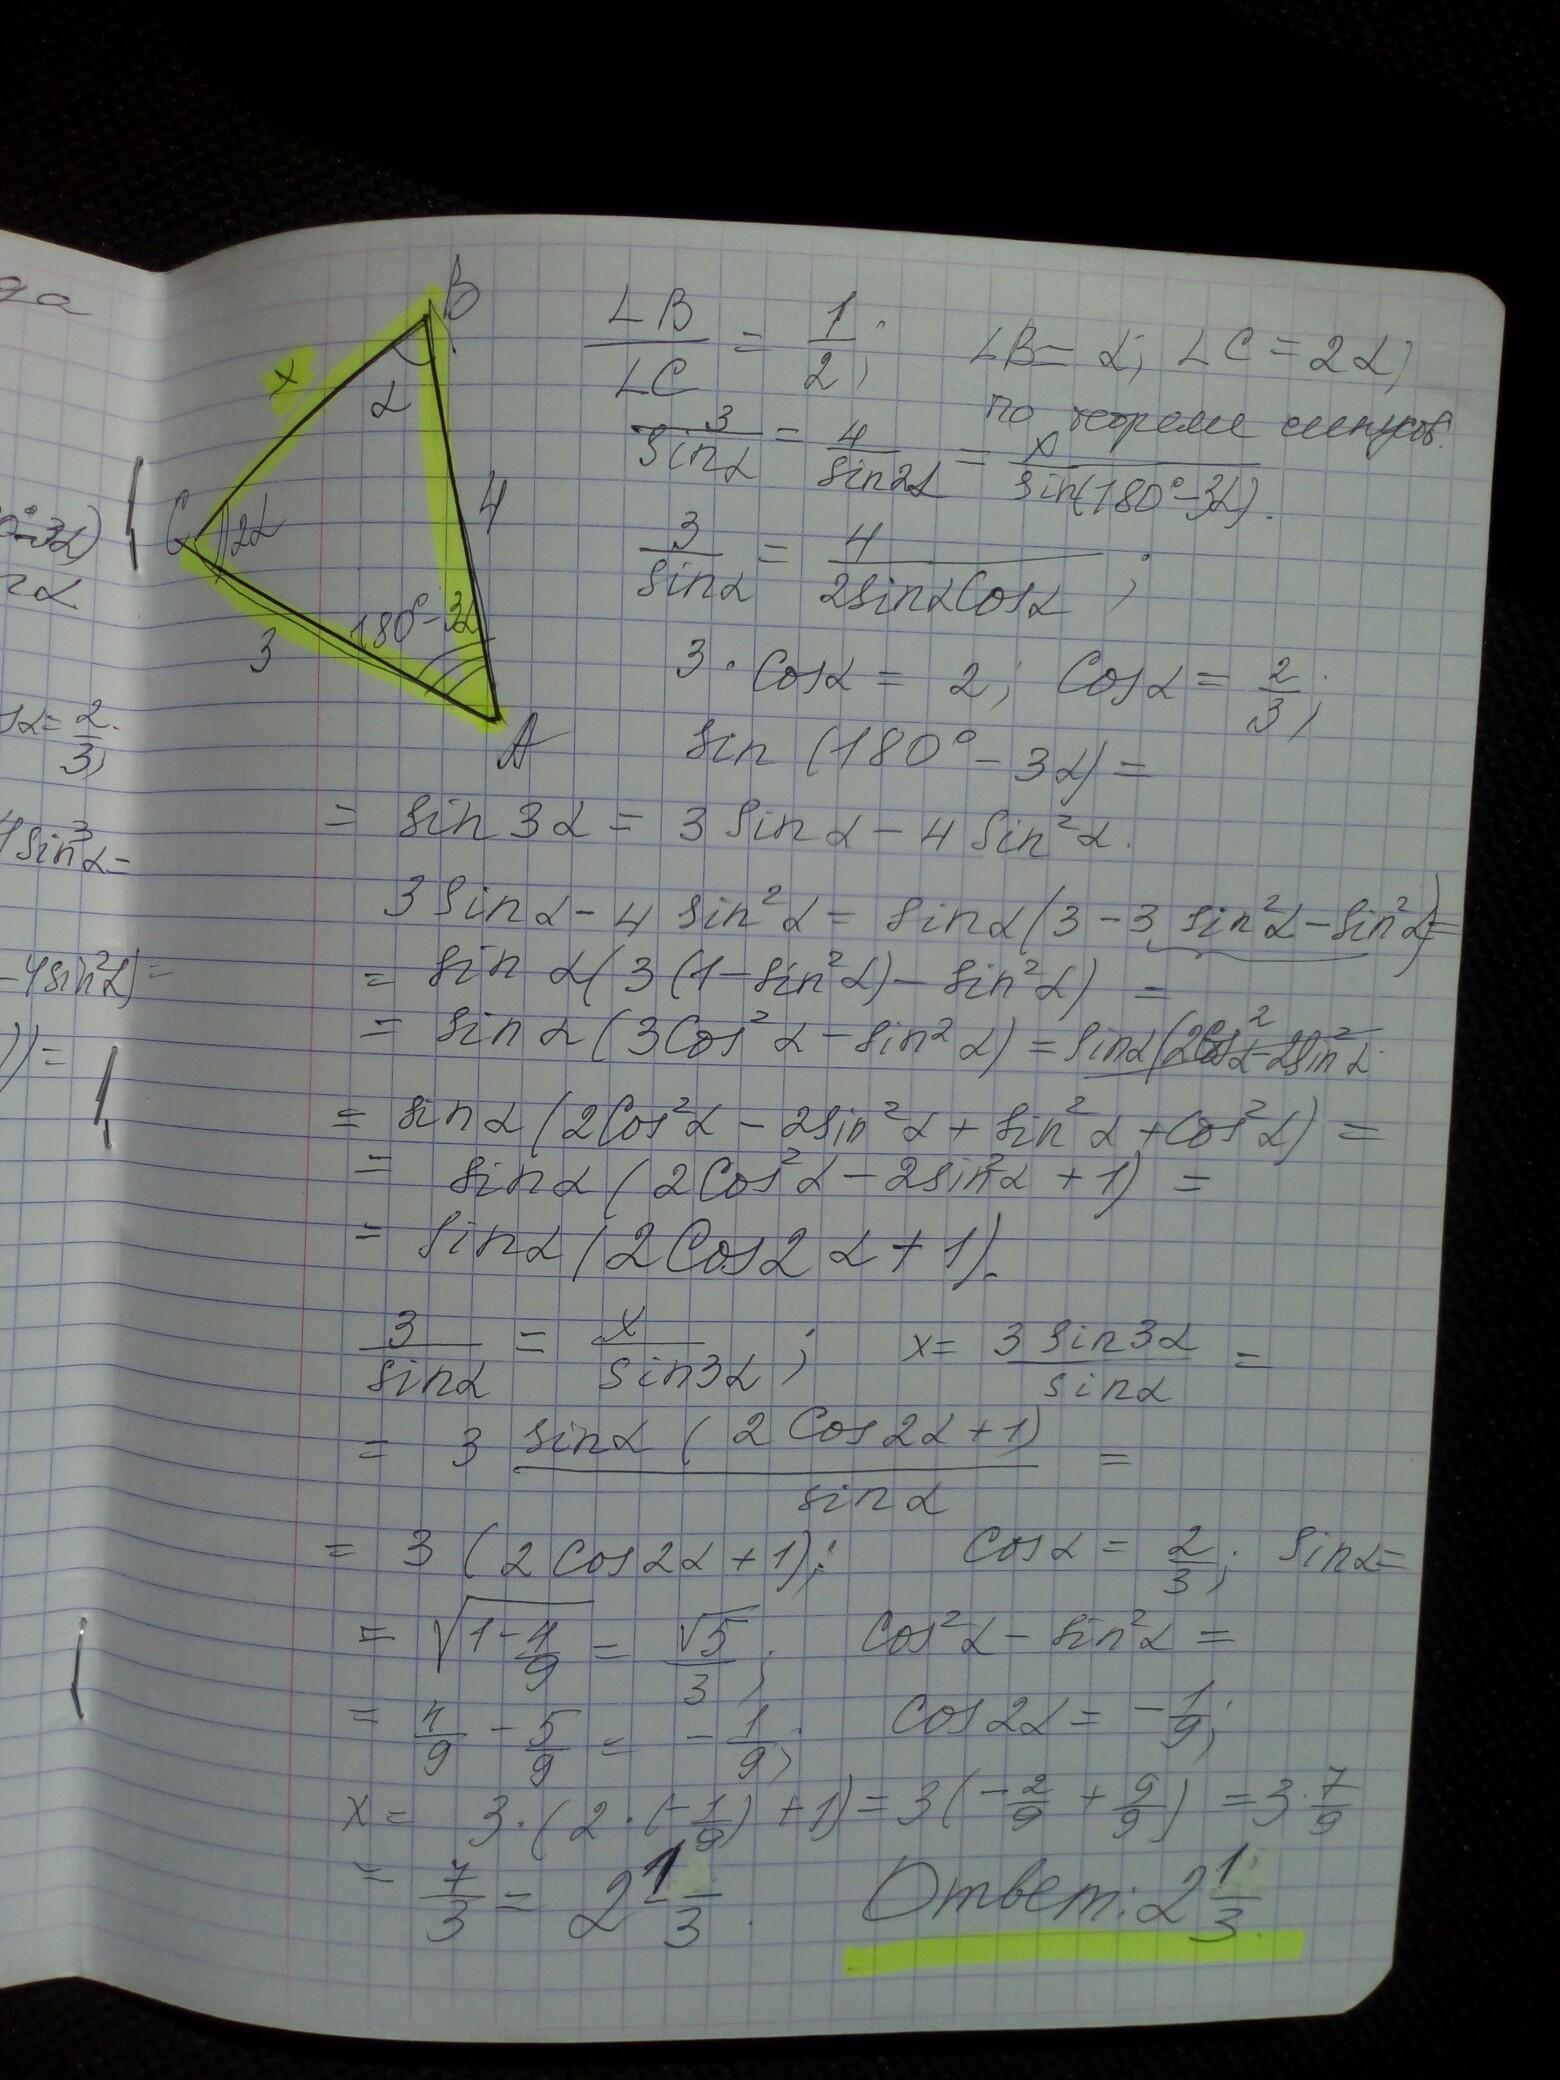 да
0°-3α)
nα
sα = 2/3;
4 sin³α =
- 4 sin²α) =
)) =
B
x
α
C
2α
4
3
180° - 3α
A
∠B/∠C = 1/2; ∠B = α; ∠C = 2α;
по теореме синусов.
3/sinα = 4/sin2α = x/sin(180° - 3α).
3/sinα = 4/2sinαCosα;
3 · Cosα = 2; Cosα = 2/3;
sin (180° - 3α) =
= sin 3α = 3 sin α - 4 sin²α.
3 sin α - 4 sin²α = sin α (3 - 3 sin²α - sin²α) =
= sin α (3 (1 - sin²α) - sin²α) =
= sin α (3Cos²α - sin²α) = sinα (2Cos²α - 2sin²α
= sin α (2Cos²α - 2sin²α + sin²α + Cos²α) =
= sinα (2Cos²α - 2sin²α + 1) =
= sinα (2Cos2α + 1).
3/sinα = x/sin3α; x = 3 sin3α/sinα =
= 3 sinα (2 Cos2α + 1)/sinα =
= 3 (2 cos2α + 1); Cosα = 2/3; Sinα =
= √(1 - 4/9) = √5/3; Cos²α - sin²α =
= 4/9 - 5/9 = - 1/9; Cos2α = - 1/9;
x = 3 · (2 · (- 1/9) + 1) = 3 (- 2/9 + 9/9) = 3 · 7/9
= 7/3 = 2 1/3. Ответ: 2 1/3.